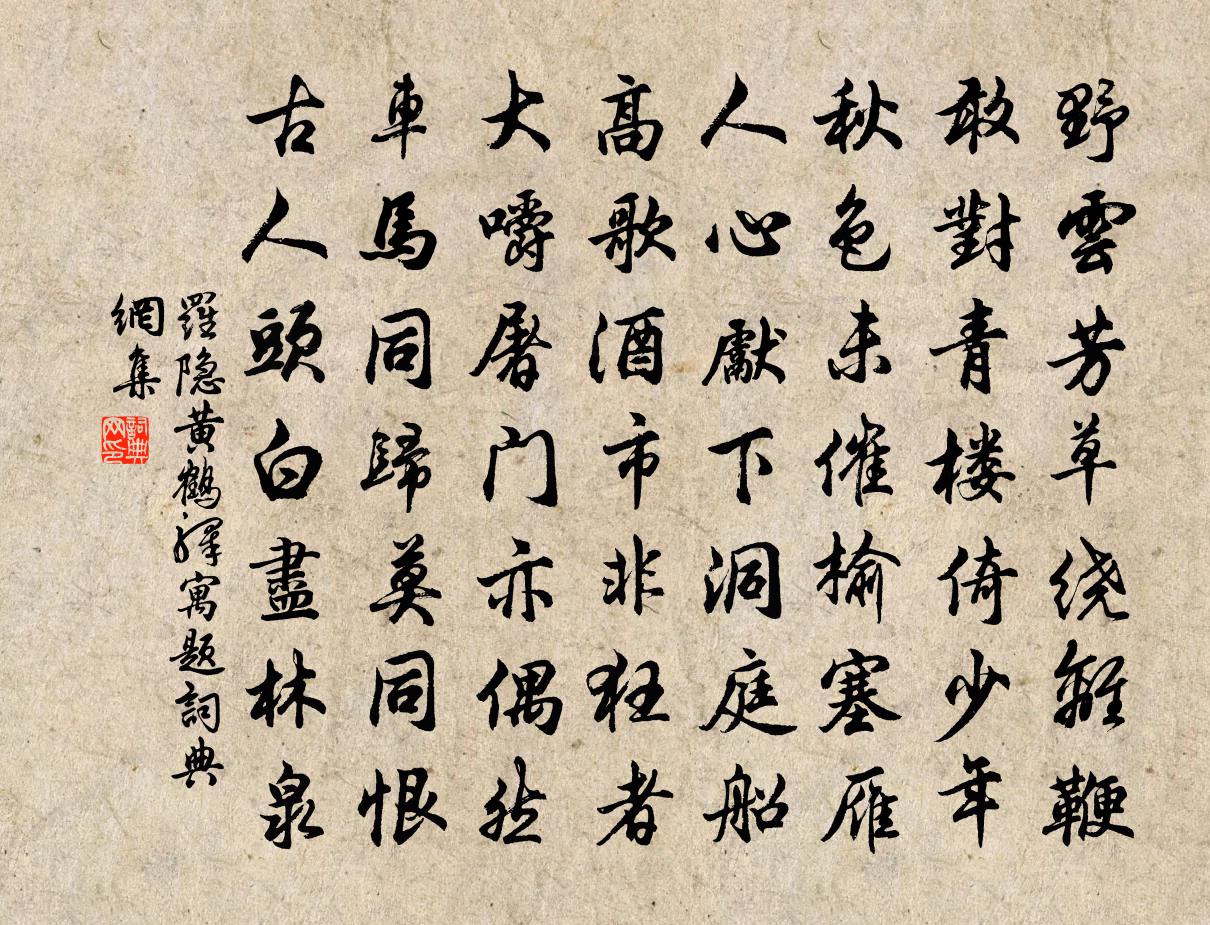 野雲芳草绕離鞭
敢對青楼倚少年
秋色未催榆塞雁
人心獻下洞庭船
高歌酒市非狂者
大嚼屠门亦偶然
車馬同歸莫同恨
古人頭白盡林泉
羅隐黄鶴驛寓題詞典
網集
詞典网印